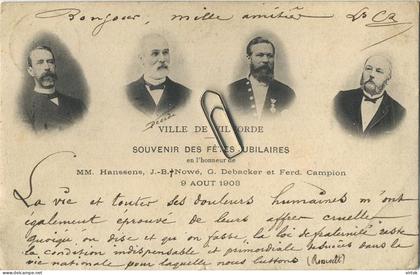 Bonjour, mille amitiés
Décédé
VILLE DE VILVORDE
SOUVENIR DES FÊTES JUBILAIRES
en l'honneur de
MM. Hanssens, J.-B. Nowé, G. Debacker et Ferd. Campion
9 AOUT 1908
La vie et toutes ses douleurs humaines m'ont
également éprouvé de leurs affres cruelles
Quoiqu'on dise et qu'on fasse, la loi de fraternité reste
la condition indispensable et primordiale de la
vie nationale pour laquelle nous luttons